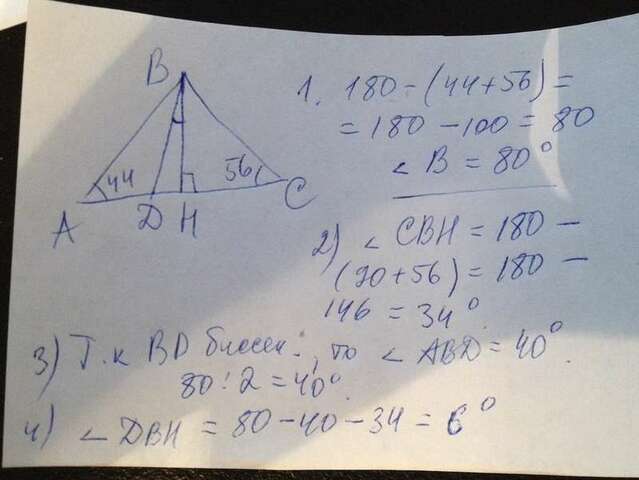 B
44
56
A
D
H
C
1. 180 - (44+56) =
= 180 - 100 = 80
∠ B = 80°
2) ∠ CBH = 180 -
(90+56) = 180 -
146 = 34°.
3) Т.к BD биссек., то ∠ ABD = 40°.
80:2 = 40°.
4) ∠ DBH = 80 - 40 - 34 = 6°